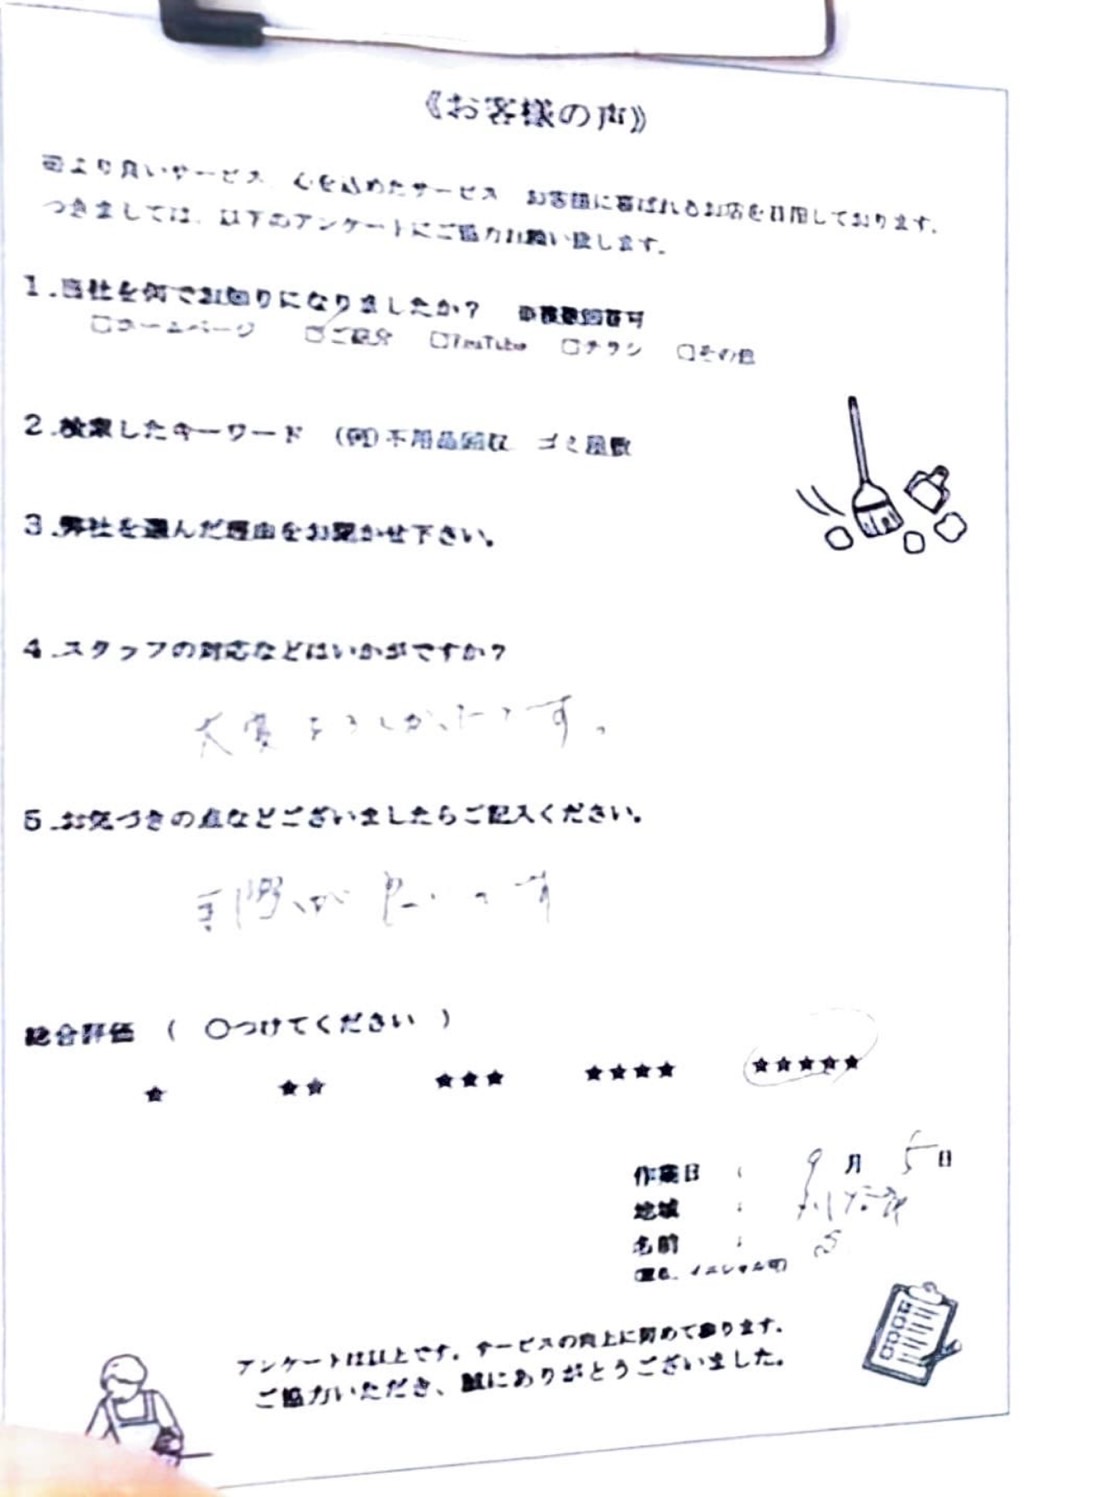 《お客様の声》
より良いサービス 心を込めたサービス お客様に喜ばれるお店を目指しております。
つきましては、以下のアンケートにご協力お願い致します。
1.当社を何でお知りになりましたか? ※複数回答可
□ホームページ ☑ご紹介 □YouTube □チラシ □その他
2.検索したキーワード (例)不用品回収 ゴミ屋敷
3.弊社を選んだ理由をお聞かせ下さい。
4.スタッフの対応などはいかがですか?
大変よろしかったです。
5.お気づきの点などございましたらご記入ください。
が良いです
総合評価 ( ○つけてください )
★ ★★ ★★★ ★★★★ ★★★★★
作業日 : 9月5日
地域 :
名前 : S
(匿名、イニシャル可)
アンケートは以上です。サービスの向上に努めて参ります。
ご協力いただき、誠にありがとうございました。